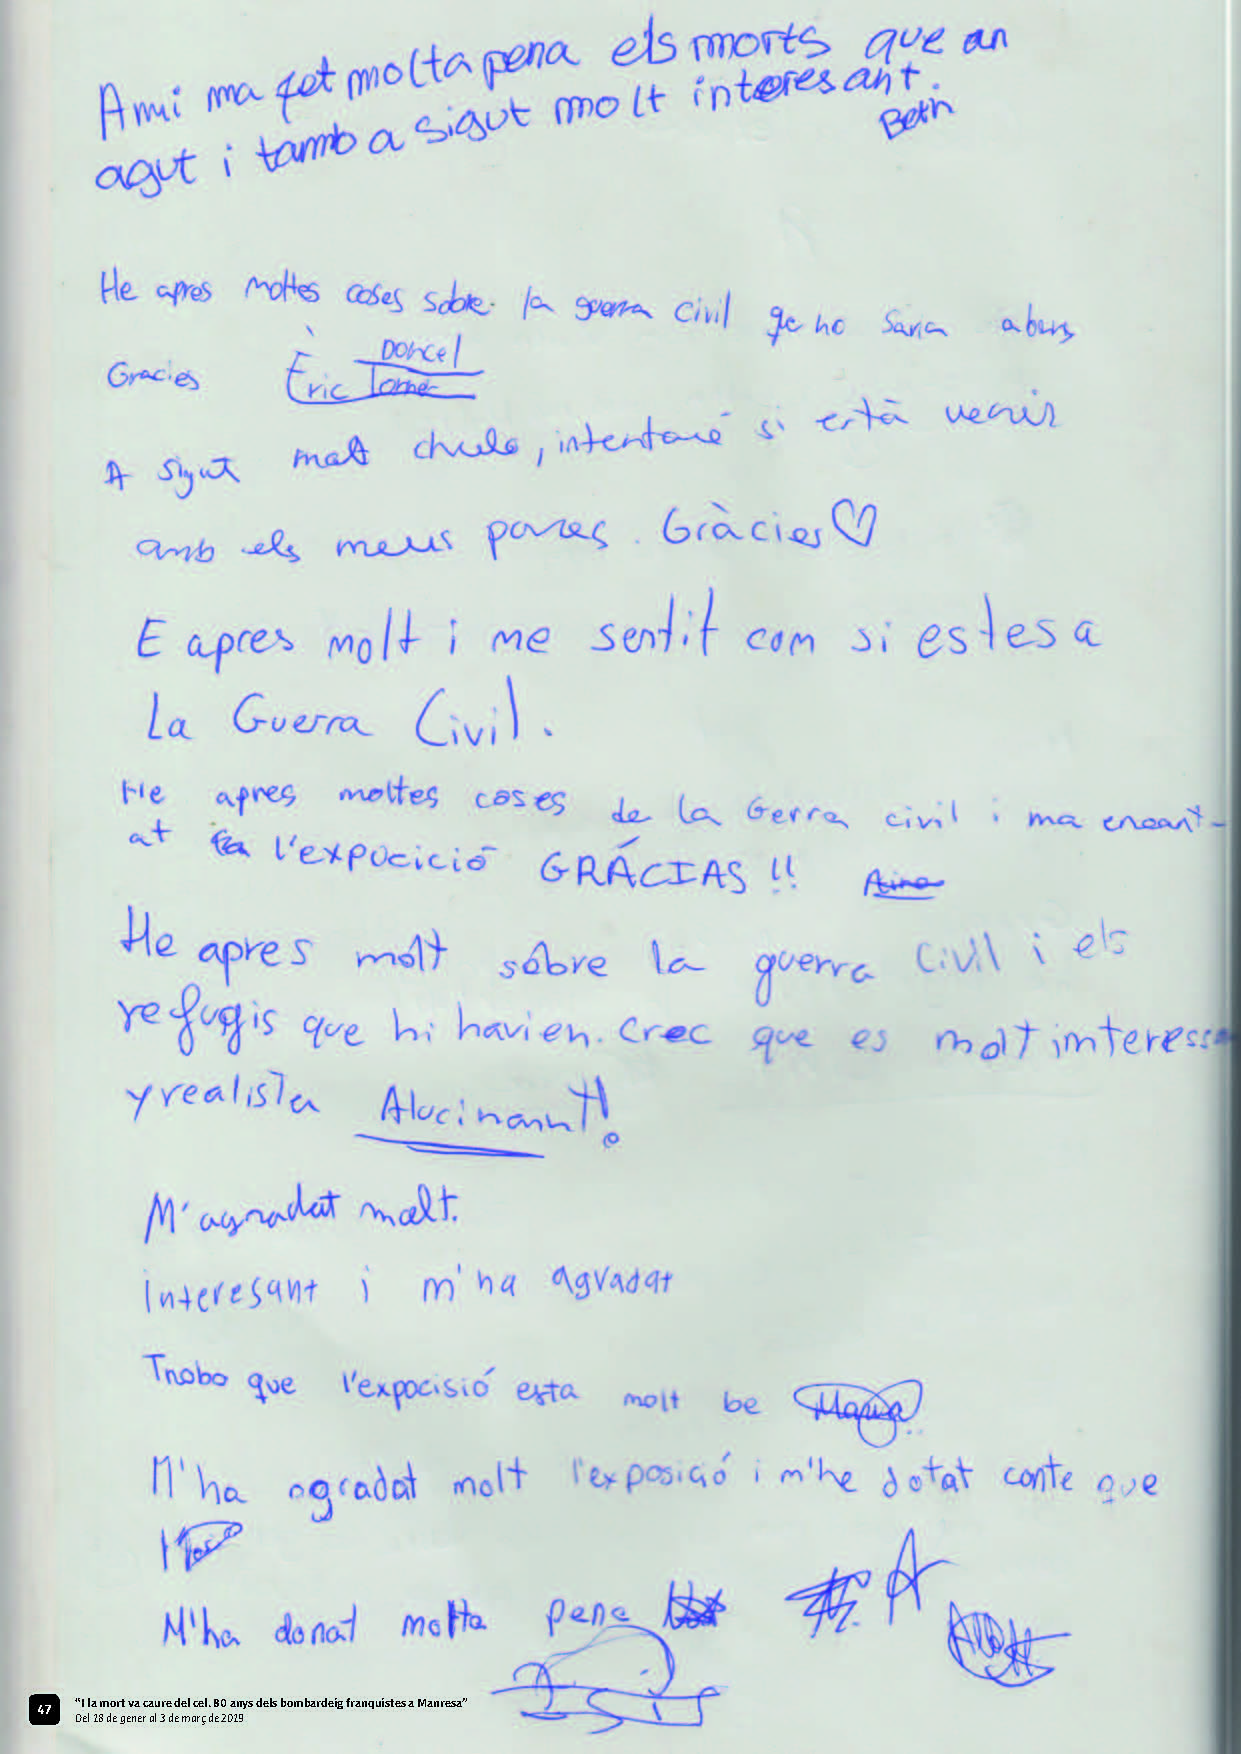 A mi ma fet molta pena els morts que an
agut i tamb a sigut molt interesant.
Beth
He apres moltes coses sobre la guerra civil qe no savia abans
Gracies Èric Doncel
A sigut molt chulo, intentaré si està venir
amb els meus pares. Gràcies ♡
E apres molt i me sentit com si estes a
La Guerra Civil.
He apres moltes coses de la Gerra civil i ma encant-
at l'expocició GRÁCIAS !! Aina
He apres molt sobre la guerra Civil i els
refugis que hi havien. Crec que es molt interessa
y realista Alucinant!
M'agradat molt.
Interesant i m'ha agradat
Trobo que l'expocisió esta molt be
M'ha agradat molt l'exposició i m'he dotat conte que
M'ha donat molta pena
A
47 "I la mort va caure del cel. 80 anys dels bombardeig franquistes a Manresa"
Del 18 de gener al 3 de març de 2019